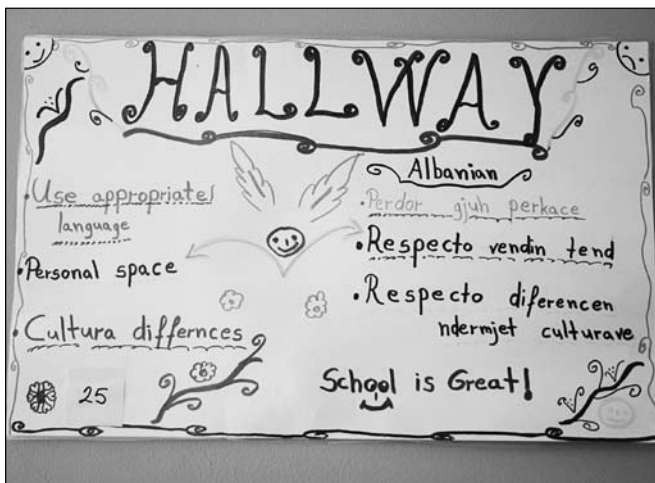 HALLWAY
• Use appropriate
language
• Personal space
• Cultura differnces
25
Albanian
• Perdor gjuh perkace
• Respecto vendin tend
• Respecto diferencen
ndermjet culturave
School is Great!